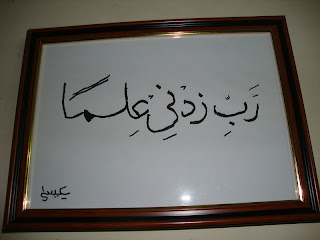 رَبِّ زِدْنِيْ عِلْمًا